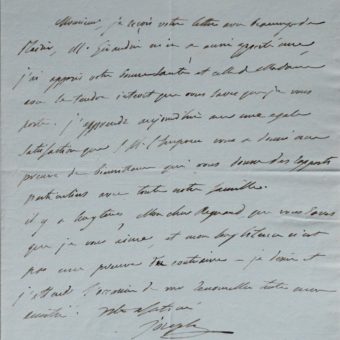 Monsieur, je reçois votre lettre avec beaucoup de
plaisir, M. Girardin m'en a aussi apporté une
j'ai appris votre bonne santé et celle de Madame
avec le tendre intérêt que vous savez que je vous
porte. j'apprends aujourd'hui avec une égale
satisfaction que S. M. l'Empereur vous a donné une
preuve de bienveillance qui vous donne des rapports
particuliers avec toute notre famille.
il y a longtems Mon cher Regnaud que vous savez
que je vous aime, et mon long silence n'est
pas une preuve du contraire - je désire et
j'attends l'occasion de me renouveller toute mon
amitié. votre affectionné
Joseph